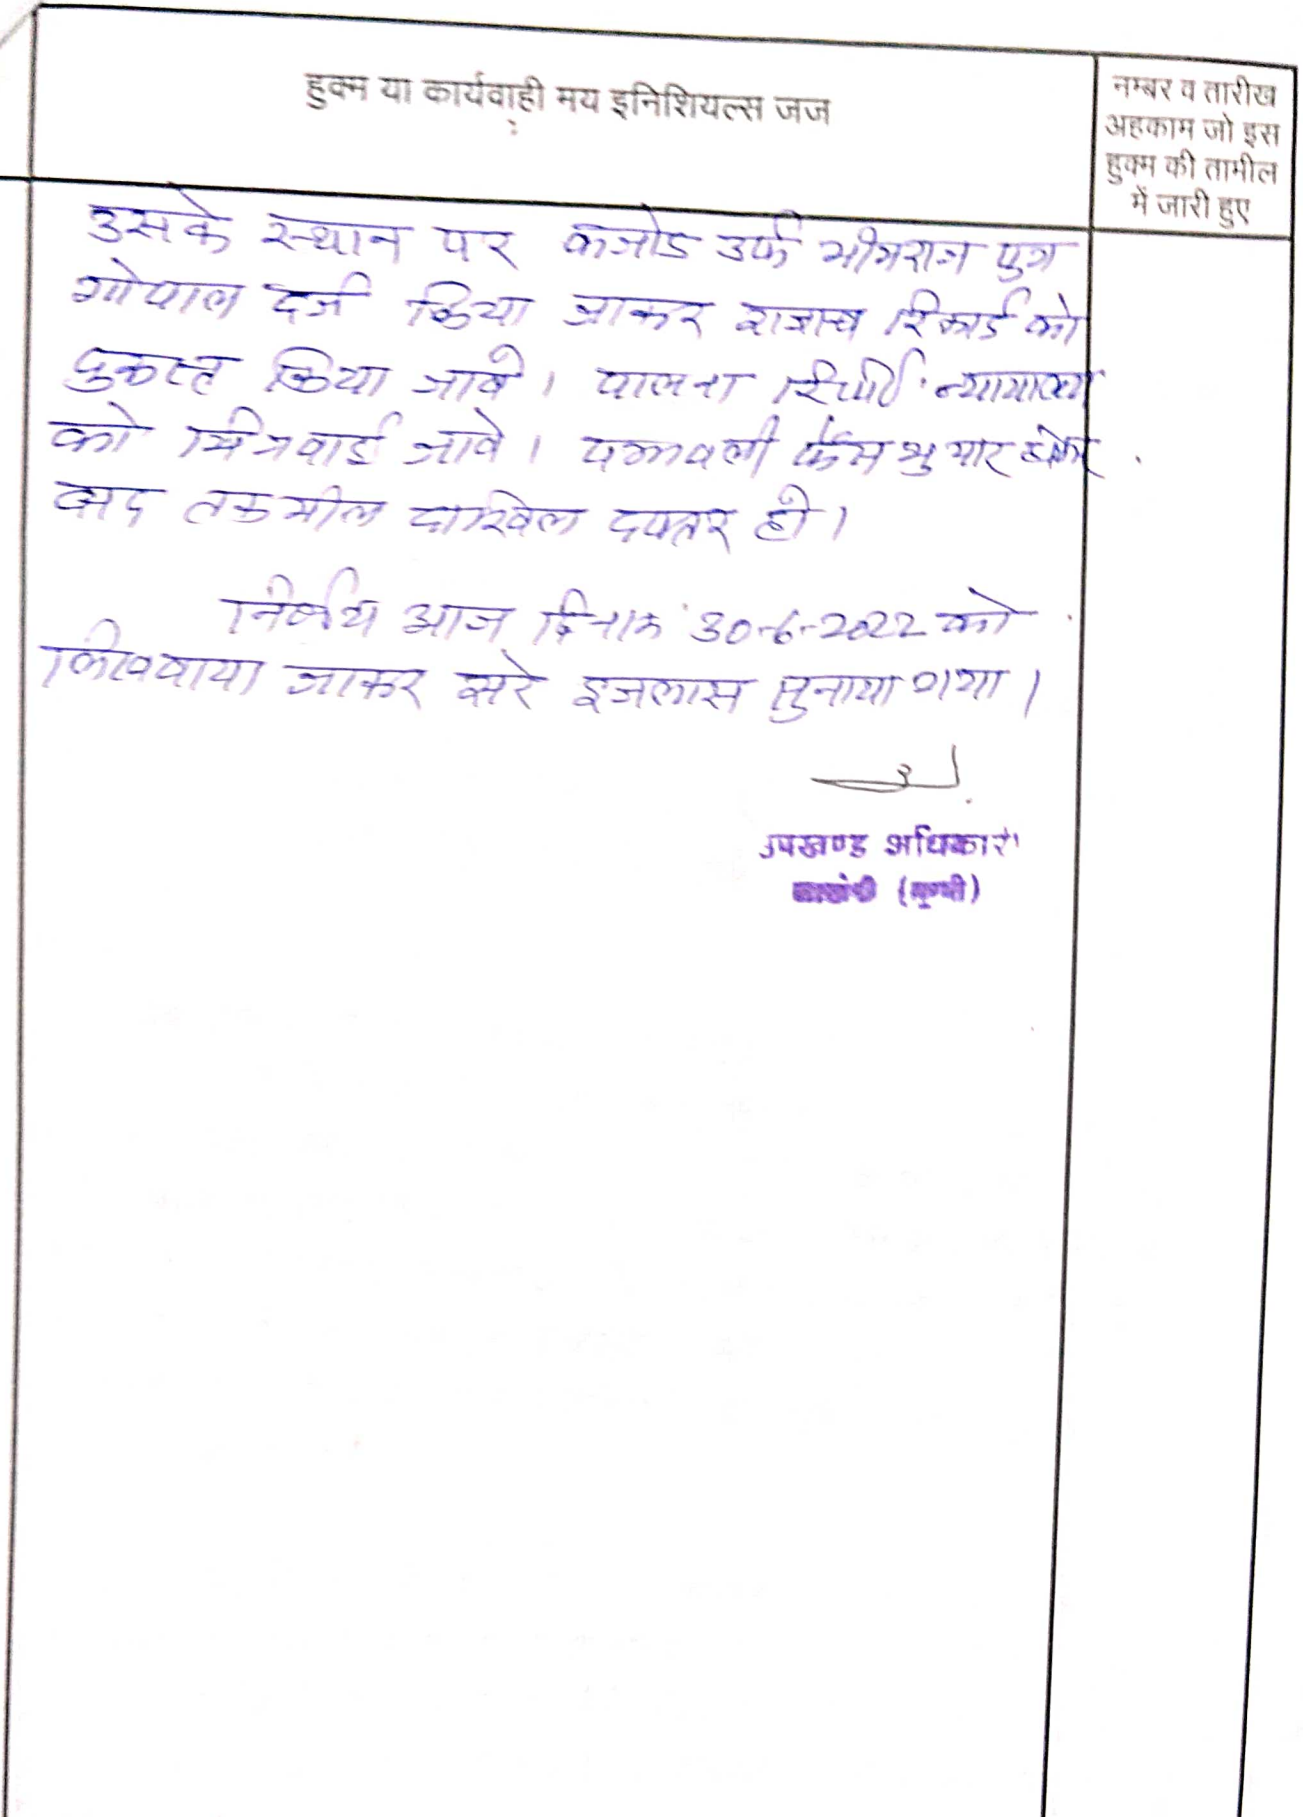 हुक्म या कार्यवाही मय इनिशियल्स जज
नम्बर व तारीख
अहकाम जो इस
हुक्म की तामील
में जारी हुए
उसके स्थान पर कजोड उर्फ भीमराज पुत्र
गोपाल दर्ज किया जाकर राजस्व रिकार्ड को
दुरूस्त किया जावे। पालना रिपोर्ट न्यायालय
को भिजवाई जावे। पत्रावली फैसल शुमार होकर
बाद तकमील दाखिल दफ्तर हो।
निर्णय आज दिनांक 30-6-2022 को
लिखवाया जाकर सरे इजलास सुनाया गया।
उपखण्ड अधिकारी
(बून्दी)